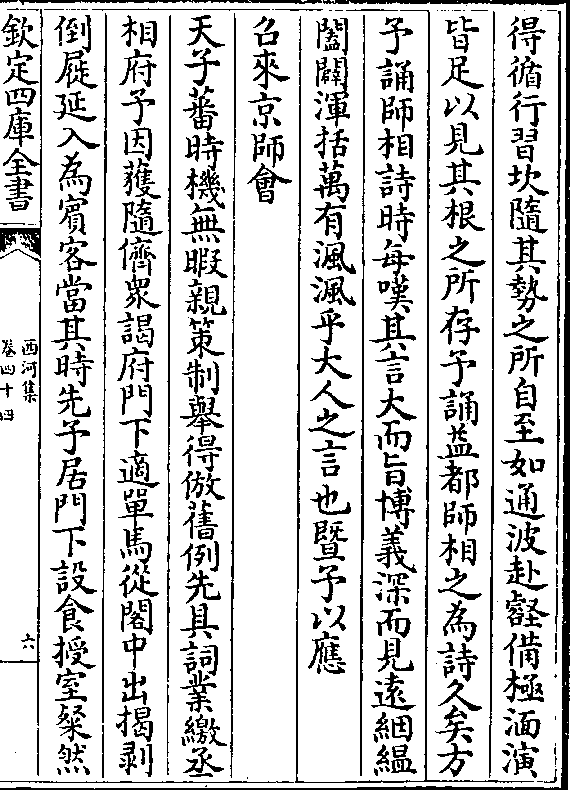 得循行習坎隨其勢之所自至如通波赴壑備極湎演
皆足以見其根之所存予誦益都師相之為詩久矣方
予誦師相詩時每嘆其言大而旨博義深而見遠絪縕
闔闢渾括萬有渢渢乎大人之言也暨予以應
召來京師會
天子蕃時機無暇親策制舉得倣舊例先具詞業繳丞
相府予因獲隨儕衆謁府門下適單馬從閣中出揭剥
倒屣延入為賓客當其時先予居門下設食授室粲然
欽定四庫全書
西河集
卷四十四
六